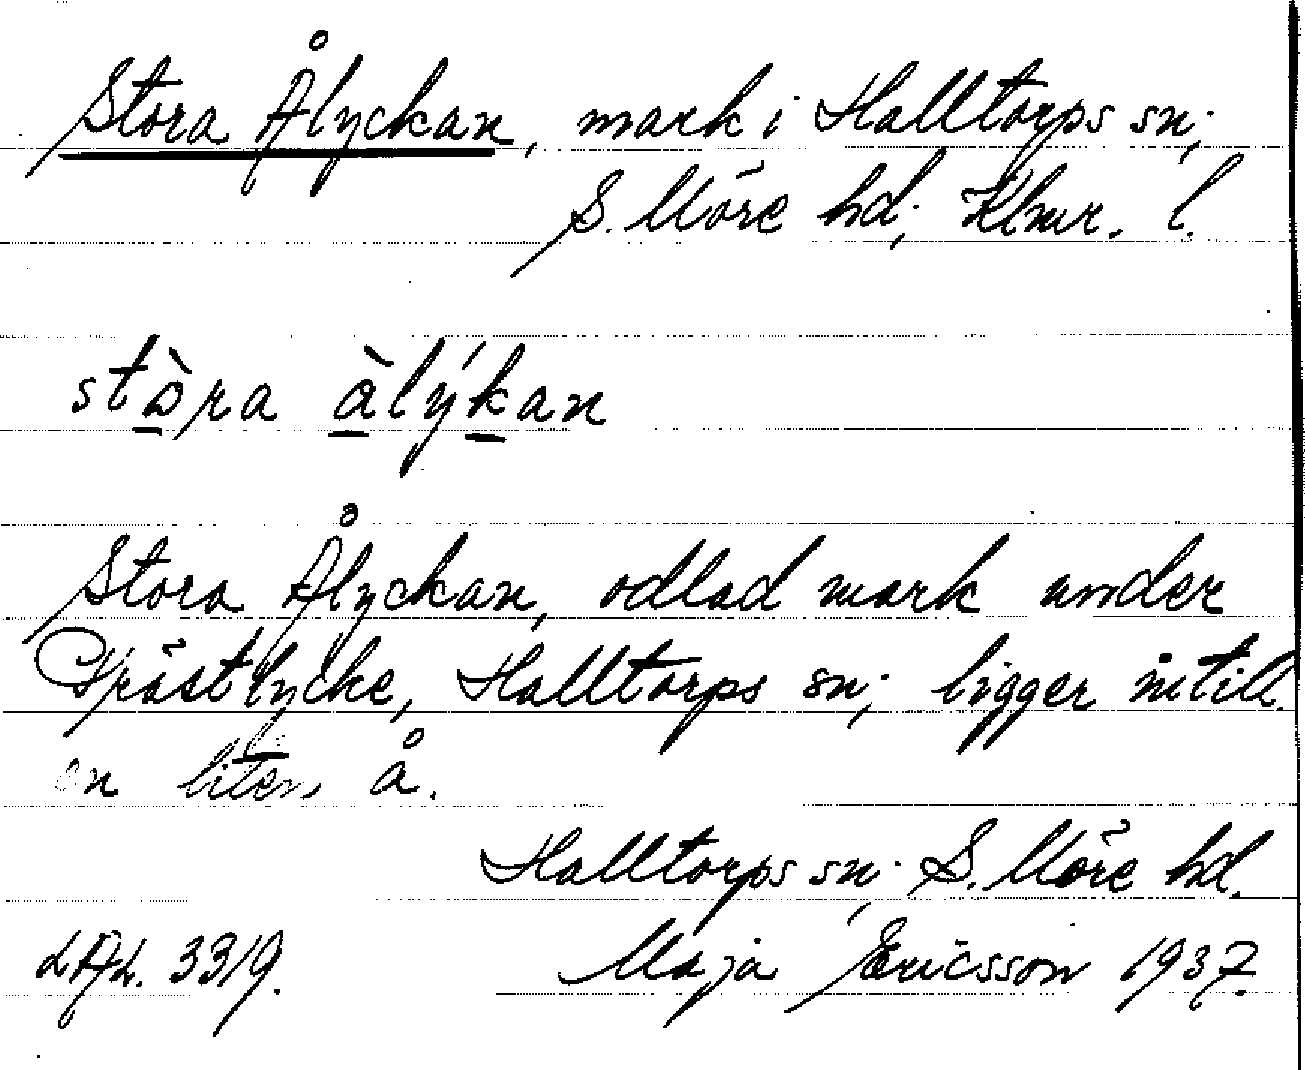 Stora Ålyckan, mark i Halltorps sn;
S. Möre hd; Klmr. l.
stòra àlýkan
Stora Ålyckan, odlad mark under
Prästlycke, Halltorps sn; ligger intill
en liten å.
Halltorps sn; S. Möre hd.
LAL. 3319. Maja Ericsson 1937.